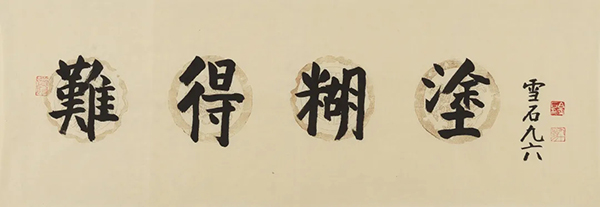 難得糊塗
雪石九六